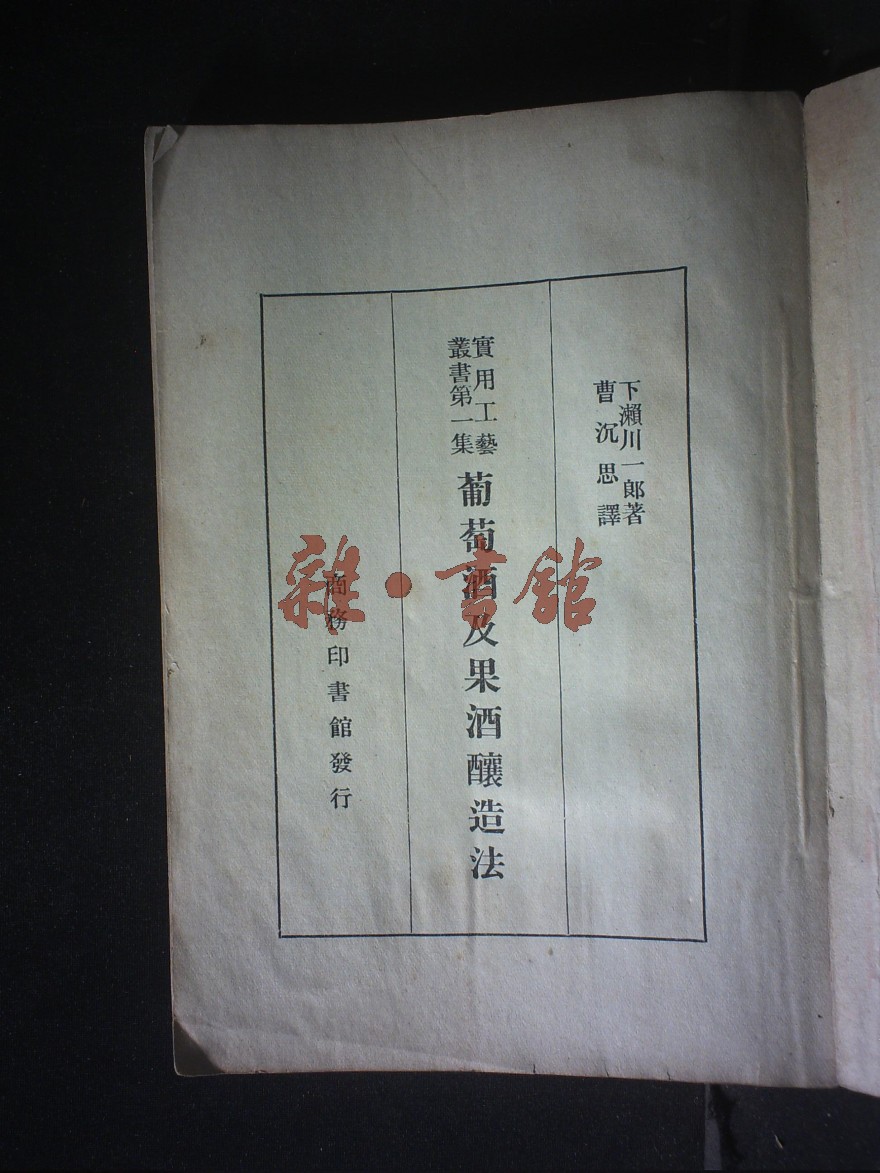 下瀨川一郎著
曹沉思譯
實用工藝
叢書第一集
葡萄酒及果酒釀造法
商務印書館發行
雜·書館